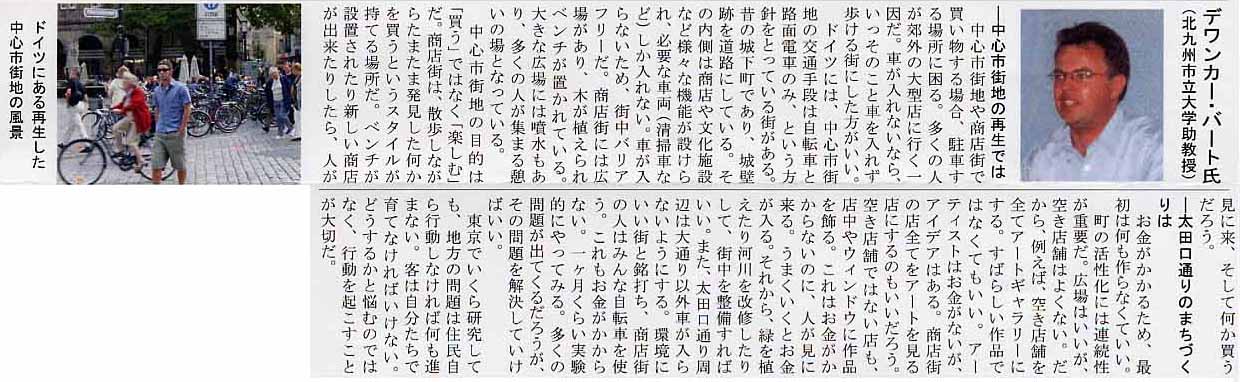 デワンカー・バート氏
（北九州市立大学助教授）
―中心市街地の再生では
中心市街地や商店街で
買い物する場合、駐車す
る場所に困る。多くの人
が郊外の大型店に行く一
因だ。車が入れないなら、
いっそのこと車を入れず
歩ける街にした方がいい。
ドイツには、中心市街
地の交通手段は自転車と
路面電車のみ、という方
針をとっている街がある。
昔の城下町であり、城壁
跡を道路にしている。そ
の内側は商店や文化施設
など様々な機能が設けら
れ、必要な車両（清掃車な
ど）しか入れない。車が入
らないため、街中バリア
フリーだ。商店街には広
場があり、木が植えられ
ベンチが置かれている。
大きな広場には噴水もあ
り、多くの人が集まる憩
いの場となっている。
中心市街地の目的は
「買う」ではなく「楽しむ」
だ。商店街は、散歩しなが
らたまたま発見した何か
を買うというスタイルが
持てる場所だ。ベンチが
設置されたり新しい商店
が出来たりしたら、人が
見に来、そして何か買う
だろう。
―太田口通りのまちづく
りは
お金がかかるため、最
初は何も作らなくていい。
町の活性化には連続性
が重要だ。広場はいいが、
空き店舗はよくない。だ
から、例えば、空き店舗を
全てアートギャラリーに
する。すばらしい作品で
はなくてもいい。アー
ティストはお金がないが、
アイデアはある。商店街
の店全てをアートを見る
店にするのもいいだろう。
空き店舗ではない店も、
店中やウィンドウに作品
を飾る。これはお金がか
からないのに、人が見に
来る。うまくいくとお金
が入る。それから、緑を植
えたり河川を改修したり
して、街中を整備すれば
いい。また、太田口通り周
辺は大通り以外車が入ら
ないようにする。環境に
いい街と銘打ち、商店街
の人はみんな自転車を使
う。これもお金がかから
ない。一ヶ月くらい実験
的にやってみる。多くの
問題が出てくるだろうが、
その問題を解決していけ
ばいい。
東京でいくら研究して
も、地方の問題は住民自
ら行動しなければ何も進
まない。客は自分たちで
育てなければいけない。
どうするかと悩むのでは
なく、行動を起こすこと
が大切だ。
ドイツにある再生した
中心市街地の風景